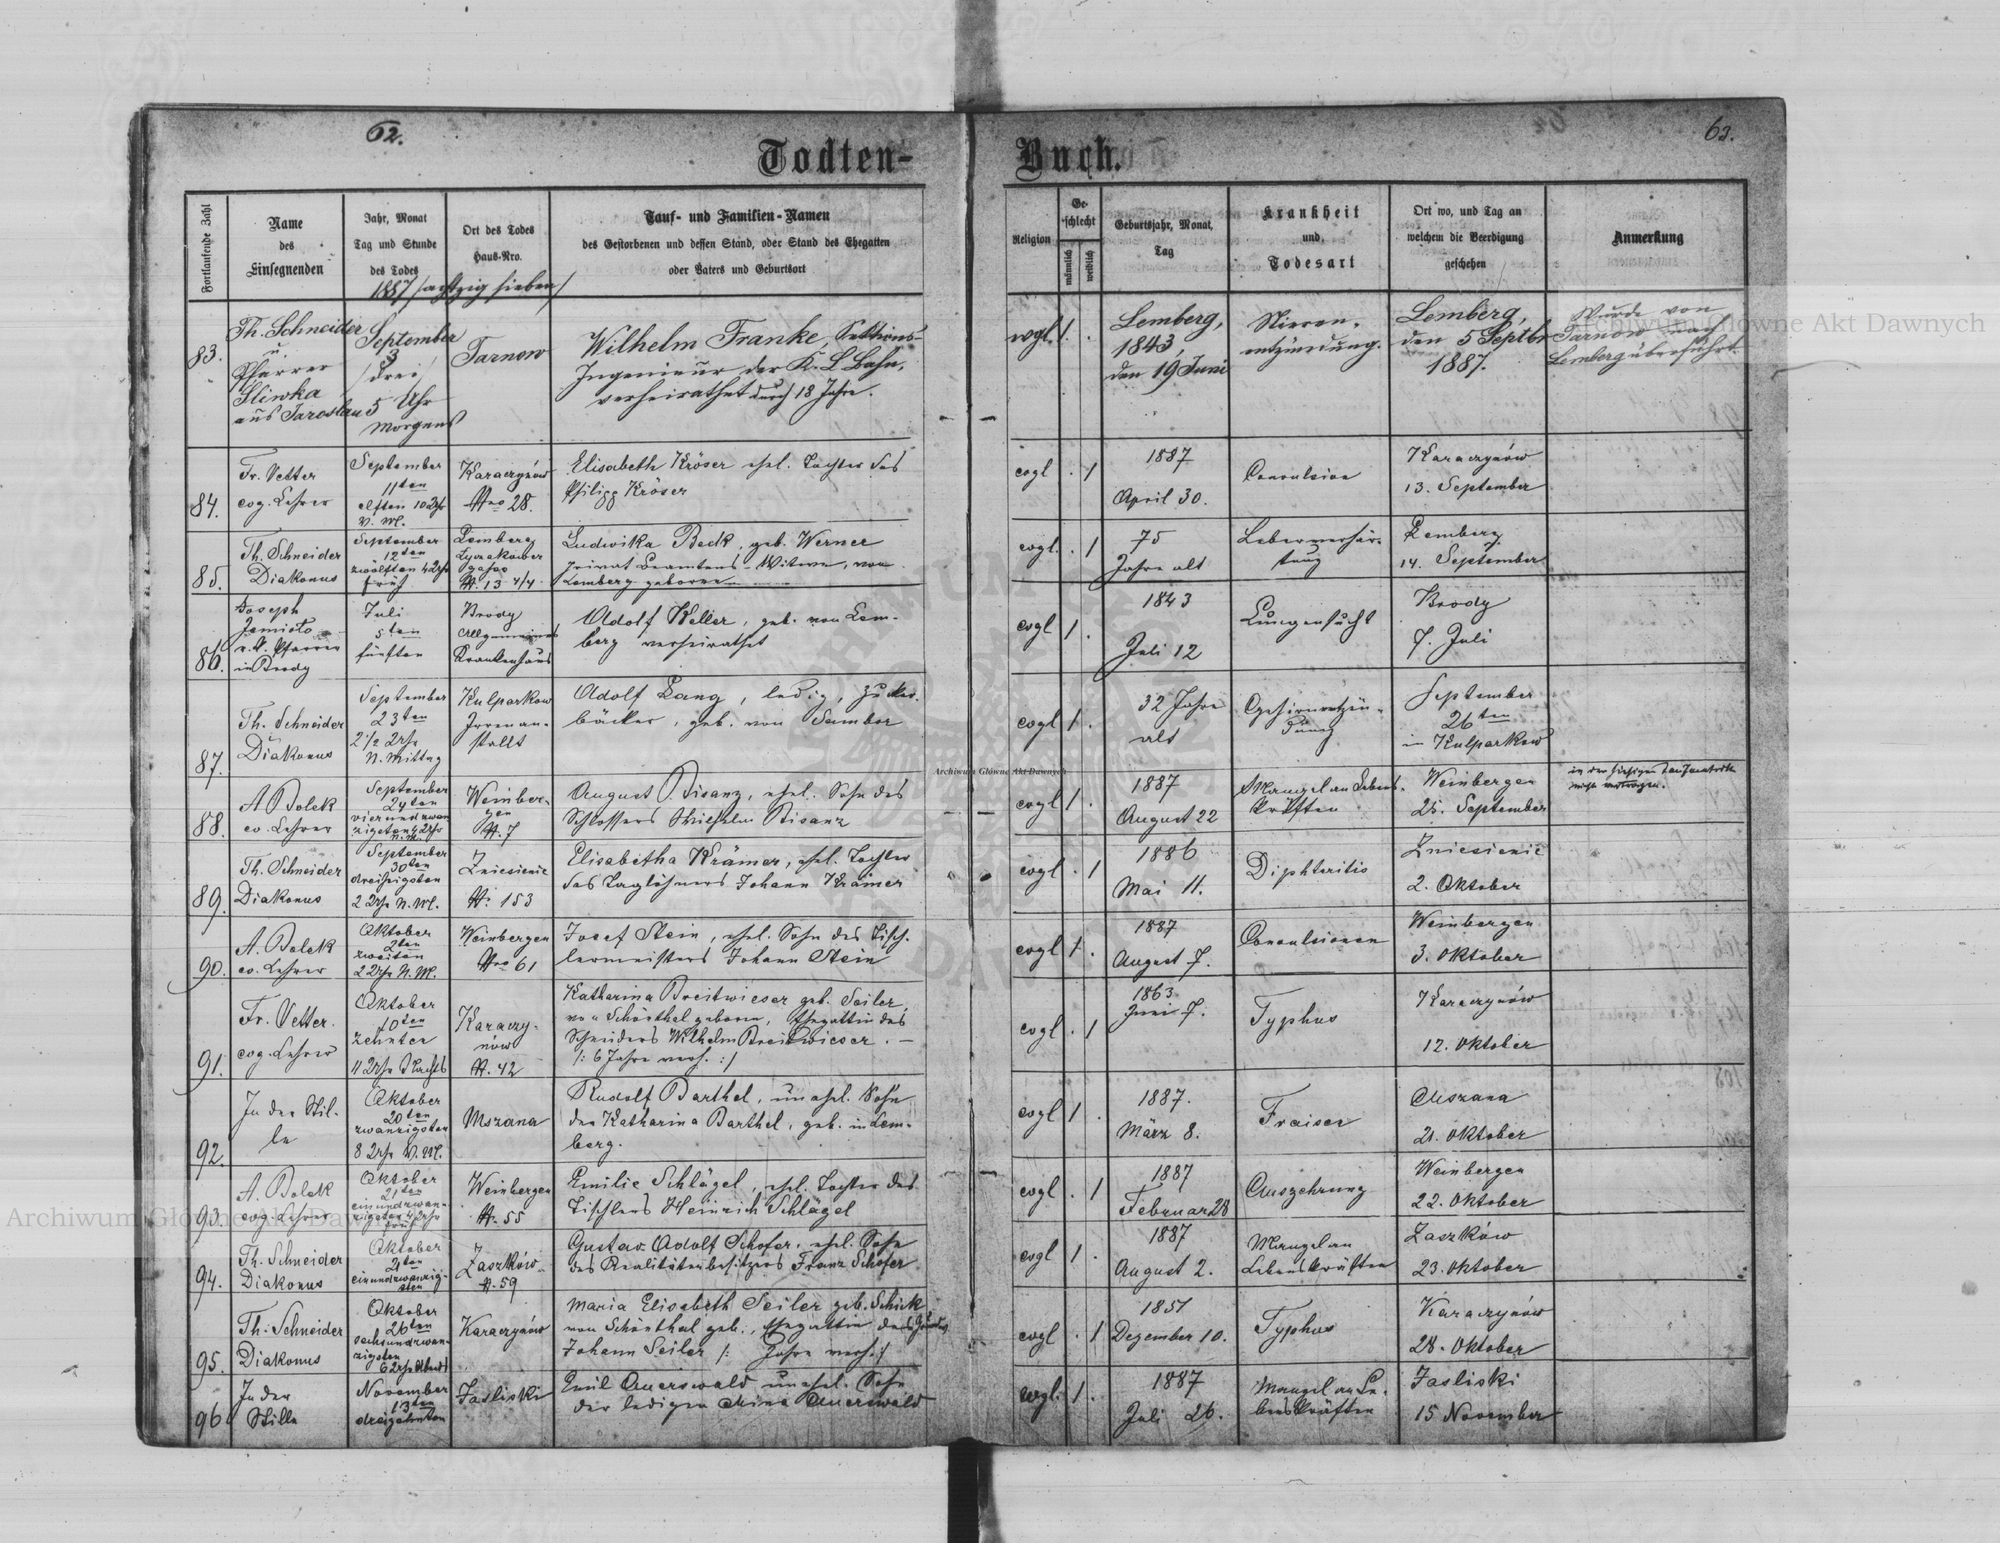 62.
63.
Todten-
Buch.
Fortlaufende Zahl
Name
des
Einsegnenden
Jahr, Monat
Tag und Stunde
des Todes
Ort des Todes
Haus-Nro.
Tauf- und Familien-Namen
des Gestorbenen und dessen Stand, oder Stand des Ehegatten
oder Vaters und Geburtsort
Religion
Ge-
schlecht
männlich
weiblich
Geburtsjahr, Monat,
Tag
Krankheit
und
Todesart
Ort wo, und Tag an
welchem die Beerdigung
geschehen
Anmerkung
1887 /achtzig sieben/
83.
Th. Schneider
u.
Pfarrer
Sliwka
aus Jaroslau
September
3
/drei/
5 Uhr
Morgens
Tarnow
Wilhelm Franke, Sektions-
Ingenieur der K. L. Bahn,
verheirathet durch 18 Jahre.
evgl.
1
.
Lemberg,
1843,
den 19 Juni
Nieren-
entzündung.
Lemberg,
den 5 Septbr
1887.
Wurde von
Tarnow nach
Lemberg überführt.
84.
Fr. Vetter
evg. Lehrer
September
11ten
elften 10 Uhr
V. M.
Karaczynów
Nro 28.
Elisabeth Kröser ehel. Tochter des
Philipp Kröser
evgl
. 1
1887
April 30.
Convulsion
Karaczynów
13. September
85.
Th. Schneider
Diakonus
September
12ten
zwölften 4 Uhr
früh
Lemberg
Lyczakower
gasse
N. 13 4/4
Ludwika Beck, geb. Werner
Privat Beamtens-Witwe, von
Lemberg geboren
evgl.
. 1
75
Jahre alt
Leberverhär-
tung
Lemberg
14. September
86.
Joseph
in Brody
Juli
5ten
fünften
Brody
Allgemeines
Krankenhaus
Adolf Keller, geb. von Lem-
berg verheirathet
evgl
1 .
1843
Juli 12
Lungensucht
Brody
7. Juli
87.
Th. Schneider
Diakonus
September
23ten
2 1/2 Uhr
N. Mittag
Kulparkow
Irrenan-
stallt
Adolf Lang, ledig, Zucker-
bäcker, geb. von Sambor
evgl
1 .
32 Jahre
alt
Gehirnentzün-
dung
September
26ten
in Kulparkow
88.
A Bolek
ev. Lehrer
September
24ten
vierundzwan
zigsten 4 Uhr
N. M.
Weinber-
gen
N. 7
August Bisanz, ehel. Sohn des
Schlossers Wilhelm Bisanz
evgl
1 .
1887
August 22
Mangel an Lebens-
kräften
Weinbergen
25. September
in der hiesigen Taufmatrik
nicht eingetragen.
89.
Th. Schneider
Diakonus
September
30ten
dreißigsten
2 Uhr N. M.
Zniesienie
N. 153
Elisabetha Krämer, ehel. Tochter
des Taglöhners Johann Krämer
evgl
. 1
1886
Mai 11.
Diphteritis
Zniesienie
2. Oktober
90.
A. Bolek
ev. Lehrer
Oktober
2ten
zweiten
2 Uhr N. M.
Weinbergen
Nro 61
Josef Stein, ehel. Sohn des Tisch-
lermeisters Johann Stein
evgl
1 .
1887
August 7.
Convulsionen
Weinbergen
3. Oktober
91.
Fr. Vetter.
evg. Lehrer
Oktober
10ten
zehnter
11 Uhr Nachts
Karaczy-
nów
N. 42
Katharina Breitwieser geb. Seiler
von Schönthal geboren, Ehegattin des
Schneiders Wilhelm Breitwieser. —
/: 6 Jahre verh. :/
evgl
. 1
1863
Juni 7.
Typhus
Karaczynów
12. Oktober
92.
In der Stil-
le
Oktober
20ten
zwanzigsten
8 Uhr V. M.
Mszana
Rudolf Barthel, unehel. Sohn
der Katharina Barthel, geb. in Lem-
berg.
evgl
1 .
1887.
März 8.
Fraisen
Mszana
21. Oktober
93.
A. Bolek
evg. Lehrer
Oktober
21ten
einundzwan-
zigsten 4 Uhr
früh
Weinbergen
N. 55
Emilie Schlägel, ehel. Tochter des
Tischlers Heinrich Schlägel
evgl
. 1
1887
Februar 28
Auszehrung
Weinbergen
22. Oktober
94.
Th. Schneider
Diakonus
Oktober
21ten
einundzwanzig-
sten
Zaszków
N. 59
Gustav Adolf Schofer, ehel. Sohn
des Realitätenbesitzers Franz Schofer
evgl
1 .
1887
August 2.
Mangel an
Lebenskräften
Zaszków
23. Oktober
95.
Th. Schneider
Diakonus
Oktober
26ten
sechsundzwan-
zigsten
6 Uhr Abends
Karaczynów
Maria Elisabeth Seiler geb. Schick
von Schönthal geb., Ehegattin des
Johann Seiler /: Jahre verh. :/
evgl
. 1
1851
Dezember 10.
Typhus
Karaczynów
28. Oktober
96
In der
Stille
November
13ten
dreizehnten
Jasliski
Emil Auerswald unehel. Sohn
der ledigen Mina Auerswald
evgl.
1 .
1887
Juli 26.
Mangel an Le-
benskräften
Jasliski
15 November
Archiwum Główne Akt Dawnych
Archiwum Główne Akt Dawnych
Archiwum Główne Akt Dawnych